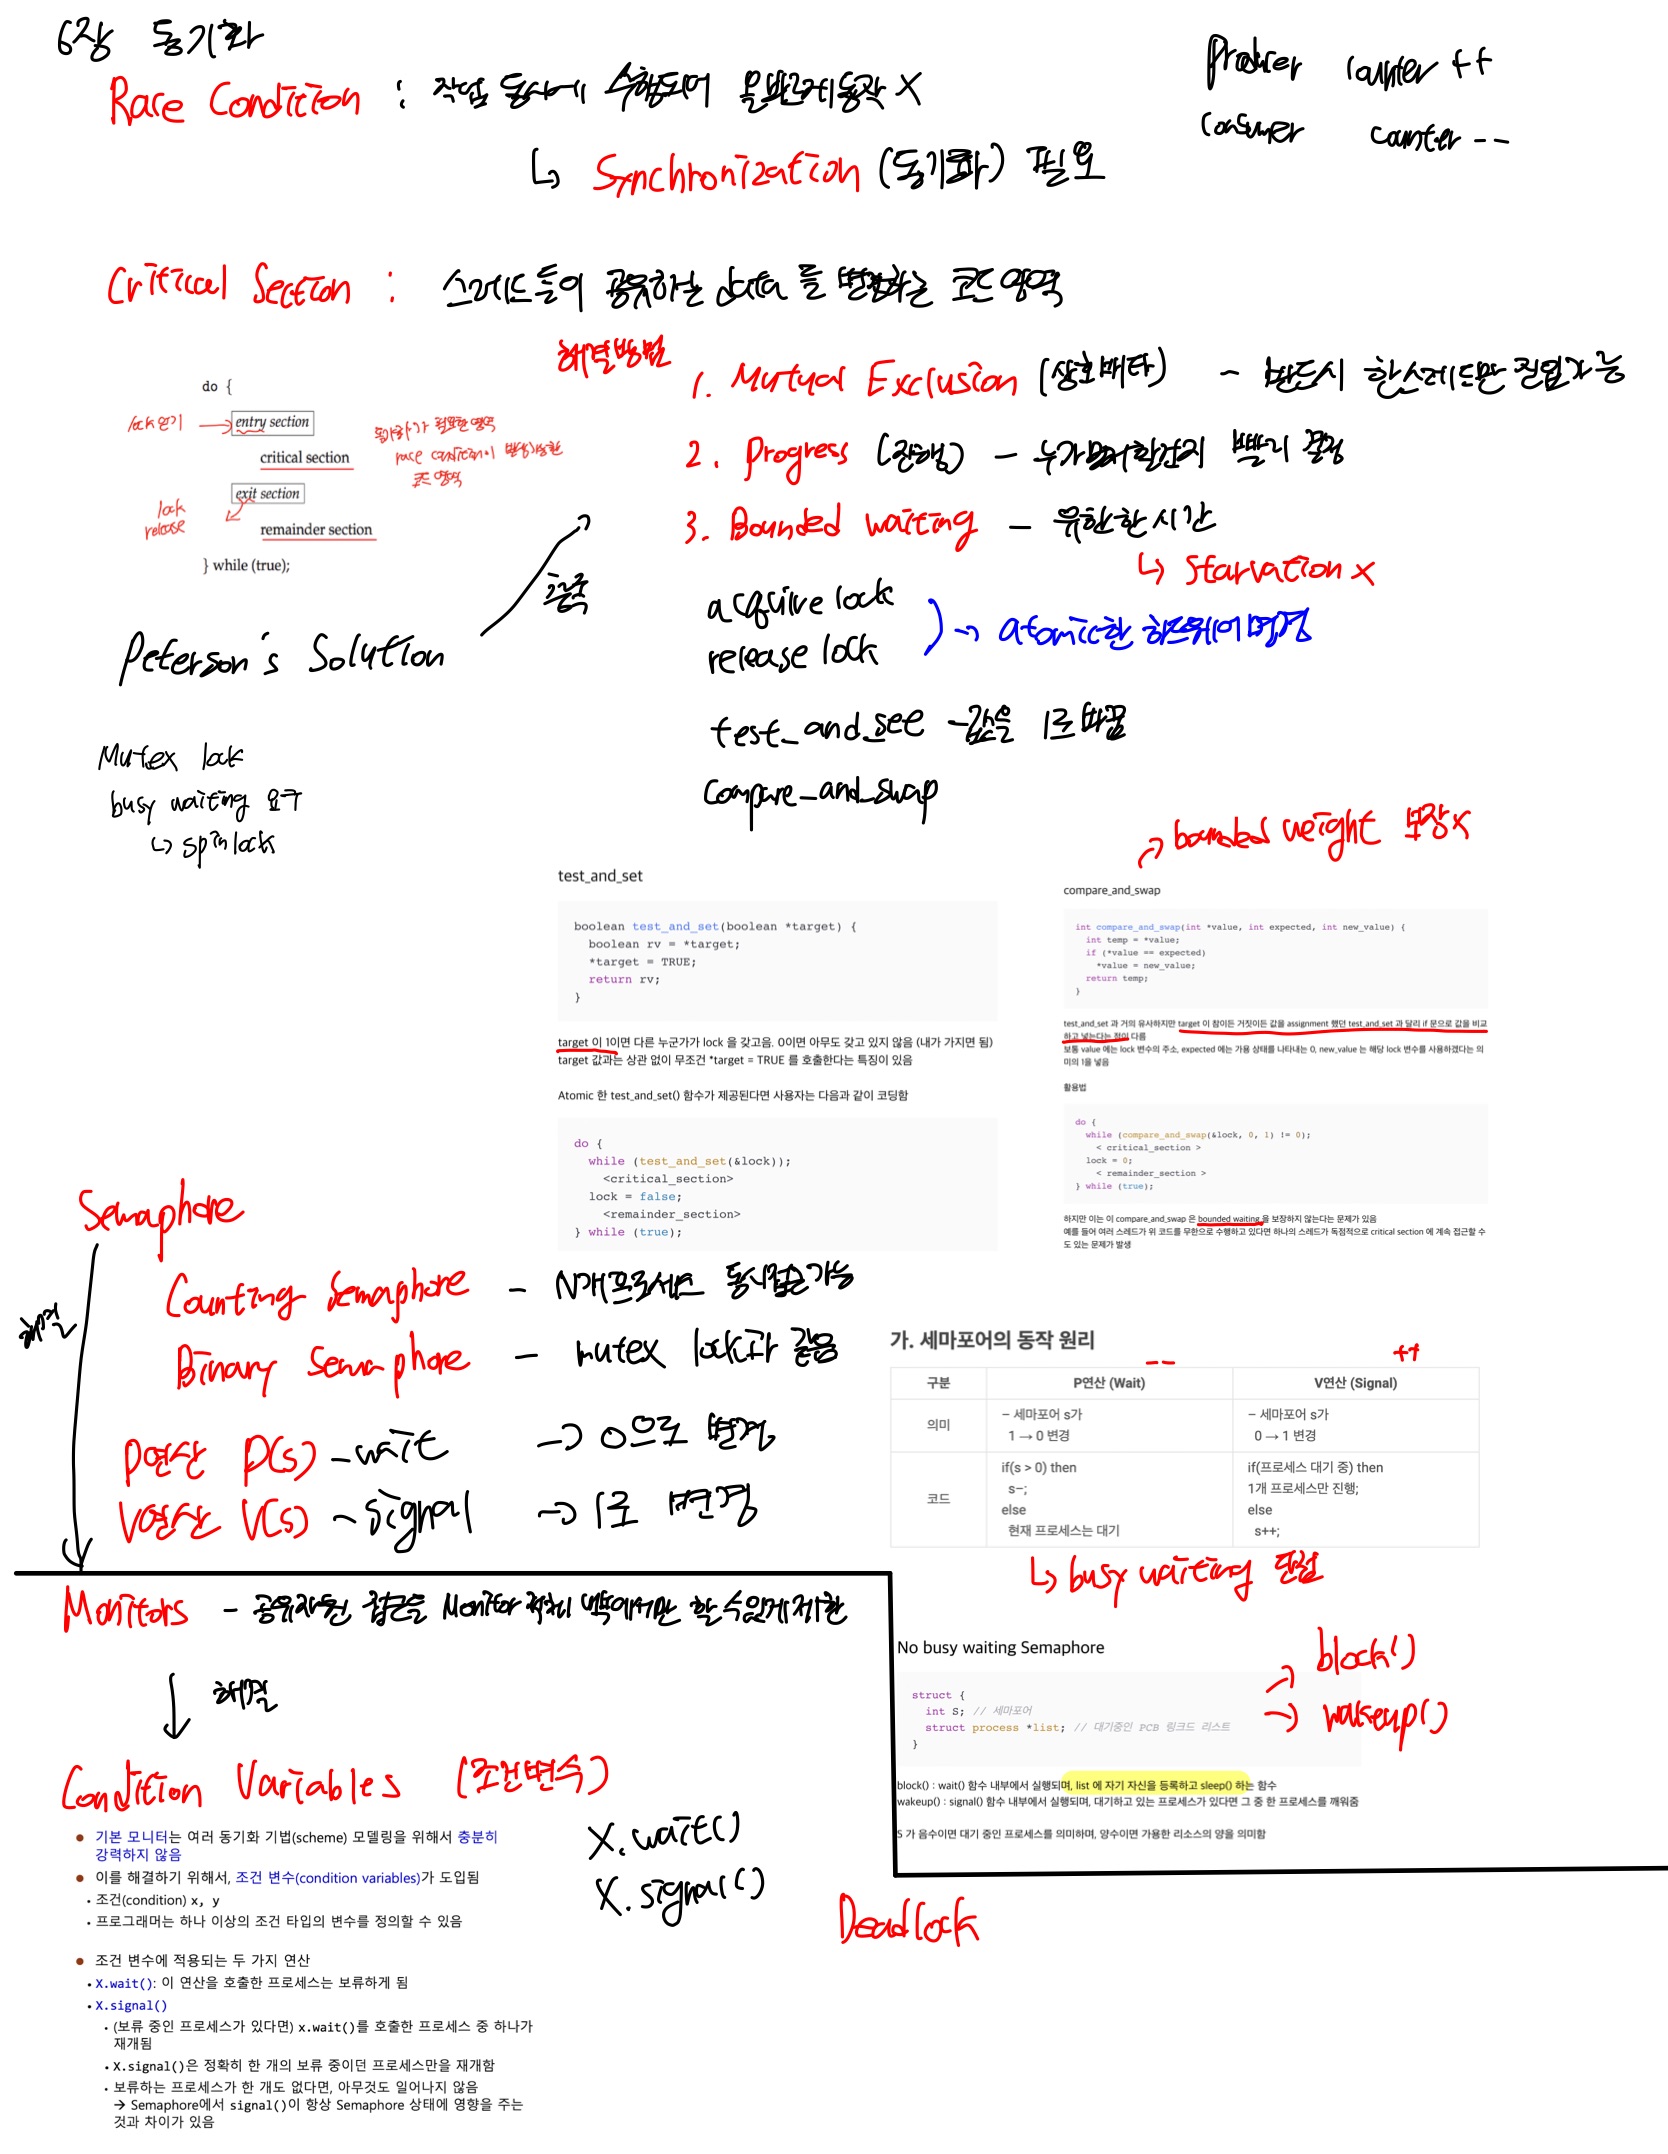 6장 동기화
Race Condition : 작업 동시에 수행되어 올바르게 동작 X
Producer counter ++
Consumer counter --
↳ Synchronization (동기화) 필요
Critical Section : 스레드들이 공유하는 data를 변경하는 코드 영역
해결방법
1. Mutual Exclusion (상호배타) - 반드시 한 스레드만 진입가능
2. Progress (진행) - 누가 먼저 할건지 빨리 결정
3. Bounded waiting - 유한한 시간
↳ Starvation X
do {
lock 얻기 → entry section
critical section
동기화가 필요한 영역
race condition이 발생가능한
코드 영역
exit section
lock
release
remainder section
} while (true);
충족
Peterson's Solution
acquire lock
release lock
→ atomic한 하드웨어 명령
test_and_see - 값을 1로 바꿈
compare_and_swap
Mutex lock
busy waiting 요구
↳ spinlock
→ bounded weight 보장 X
test_and_set
boolean test_and_set(boolean *target) {
boolean rv = *target;
*target = TRUE;
return rv;
}
target 이 1이면 다른 누군가가 lock 을 갖고음. 0이면 아무도 갖고 있지 않음 (내가 가지면 됨)
target 값과는 상관 없이 무조건 *target = TRUE 를 호출한다는 특징이 있음
Atomic 한 test_and_set() 함수가 제공된다면 사용자는 다음과 같이 코딩함
do {
while (test_and_set(&lock));
<critical_section>
lock = false;
<remainder_section>
} while (true);
compare_and_swap
int compare_and_swap(int *value, int expected, int new_value) {
int temp = *value;
if (*value == expected)
*value = new_value;
return temp;
}
test_and_set 과 거의 유사하지만 target 이 참이든 거짓이든 값을 assignment 했던 test_and_set 과 달리 if 문으로 값을 비교
하고 넣는다는 점이 다름
보통 value 에는 lock 변수의 주소, expected 에는 가용 상태를 나타내는 0, new_value 는 해당 lock 변수를 사용하겠다는 의
미의 1을 넣음
활용법
do {
while (compare_and_swap(&lock, 0, 1) != 0);
< critical_section >
lock = 0;
< remainder_section >
} while (true);
하지만 이는 이 compare_and_swap 은 bounded waiting 을 보장하지 않는다는 문제가 있음
예를 들어 여러 스레드가 위 코드를 무한으로 수행하고 있다면 하나의 스레드가 독점적으로 critical section 에 계속 접근할 수
도 있는 문제가 발생
Semaphore
해결
Counting Semaphore - N개 프로세스 동시접근가능
Binary Semaphore - mutex lock과 같음
P연산 P(s) - wait → 0으로 변경
V연산 V(s) - signal → 1로 변경
가. 세마포어의 동작 원리
-- ++
구분 P연산 (Wait) V연산 (Signal)
의미
– 세마포어 s가
1 → 0 변경
– 세마포어 s가
0 → 1 변경
코드
if(s > 0) then
s–;
else
현재 프로세스는 대기
if(프로세스 대기 중) then
1개 프로세스만 진행;
else
s++;
↳ busy waiting 단점
Monitors - 공유자원 접근을 Monitor 객체 내에서만 할 수 있게 제한
↓ 해결
No busy waiting Semaphore
struct {
int S; // 세마포어
struct process *list; // 대기중인 PCB 링크드 리스트
}
→ block()
→ wakeup()
block() : wait() 함수 내부에서 실행되며, list 에 자기 자신을 등록하고 sleep() 하는 함수
wakeup() : signal() 함수 내부에서 실행되며, 대기하고 있는 프로세스가 있다면 그 중 한 프로세스를 깨워줌
S 가 음수이면 대기 중인 프로세스를 의미하며, 양수이면 가용한 리소스의 양을 의미함
Condition Variables (조건변수)
X.wait()
X.signal()
Deadlock
● 기본 모니터는 여러 동기화 기법(scheme) 모델링을 위해서 충분히
강력하지 않음
● 이를 해결하기 위해서, 조건 변수(condition variables)가 도입됨
• 조건(condition) x, y
• 프로그래머는 하나 이상의 조건 타입의 변수를 정의할 수 있음
● 조건 변수에 적용되는 두 가지 연산
• X.wait(): 이 연산을 호출한 프로세스는 보류하게 됨
• X.signal()
• (보류 중인 프로세스가 있다면) x.wait()를 호출한 프로세스 중 하나가
재개됨
• X.signal()은 정확히 한 개의 보류 중이던 프로세스만을 재개함
• 보류하는 프로세스가 한 개도 없다면, 아무것도 일어나지 않음
→ Semaphore에서 signal()이 항상 Semaphore 상태에 영향을 주는
것과 차이가 있음